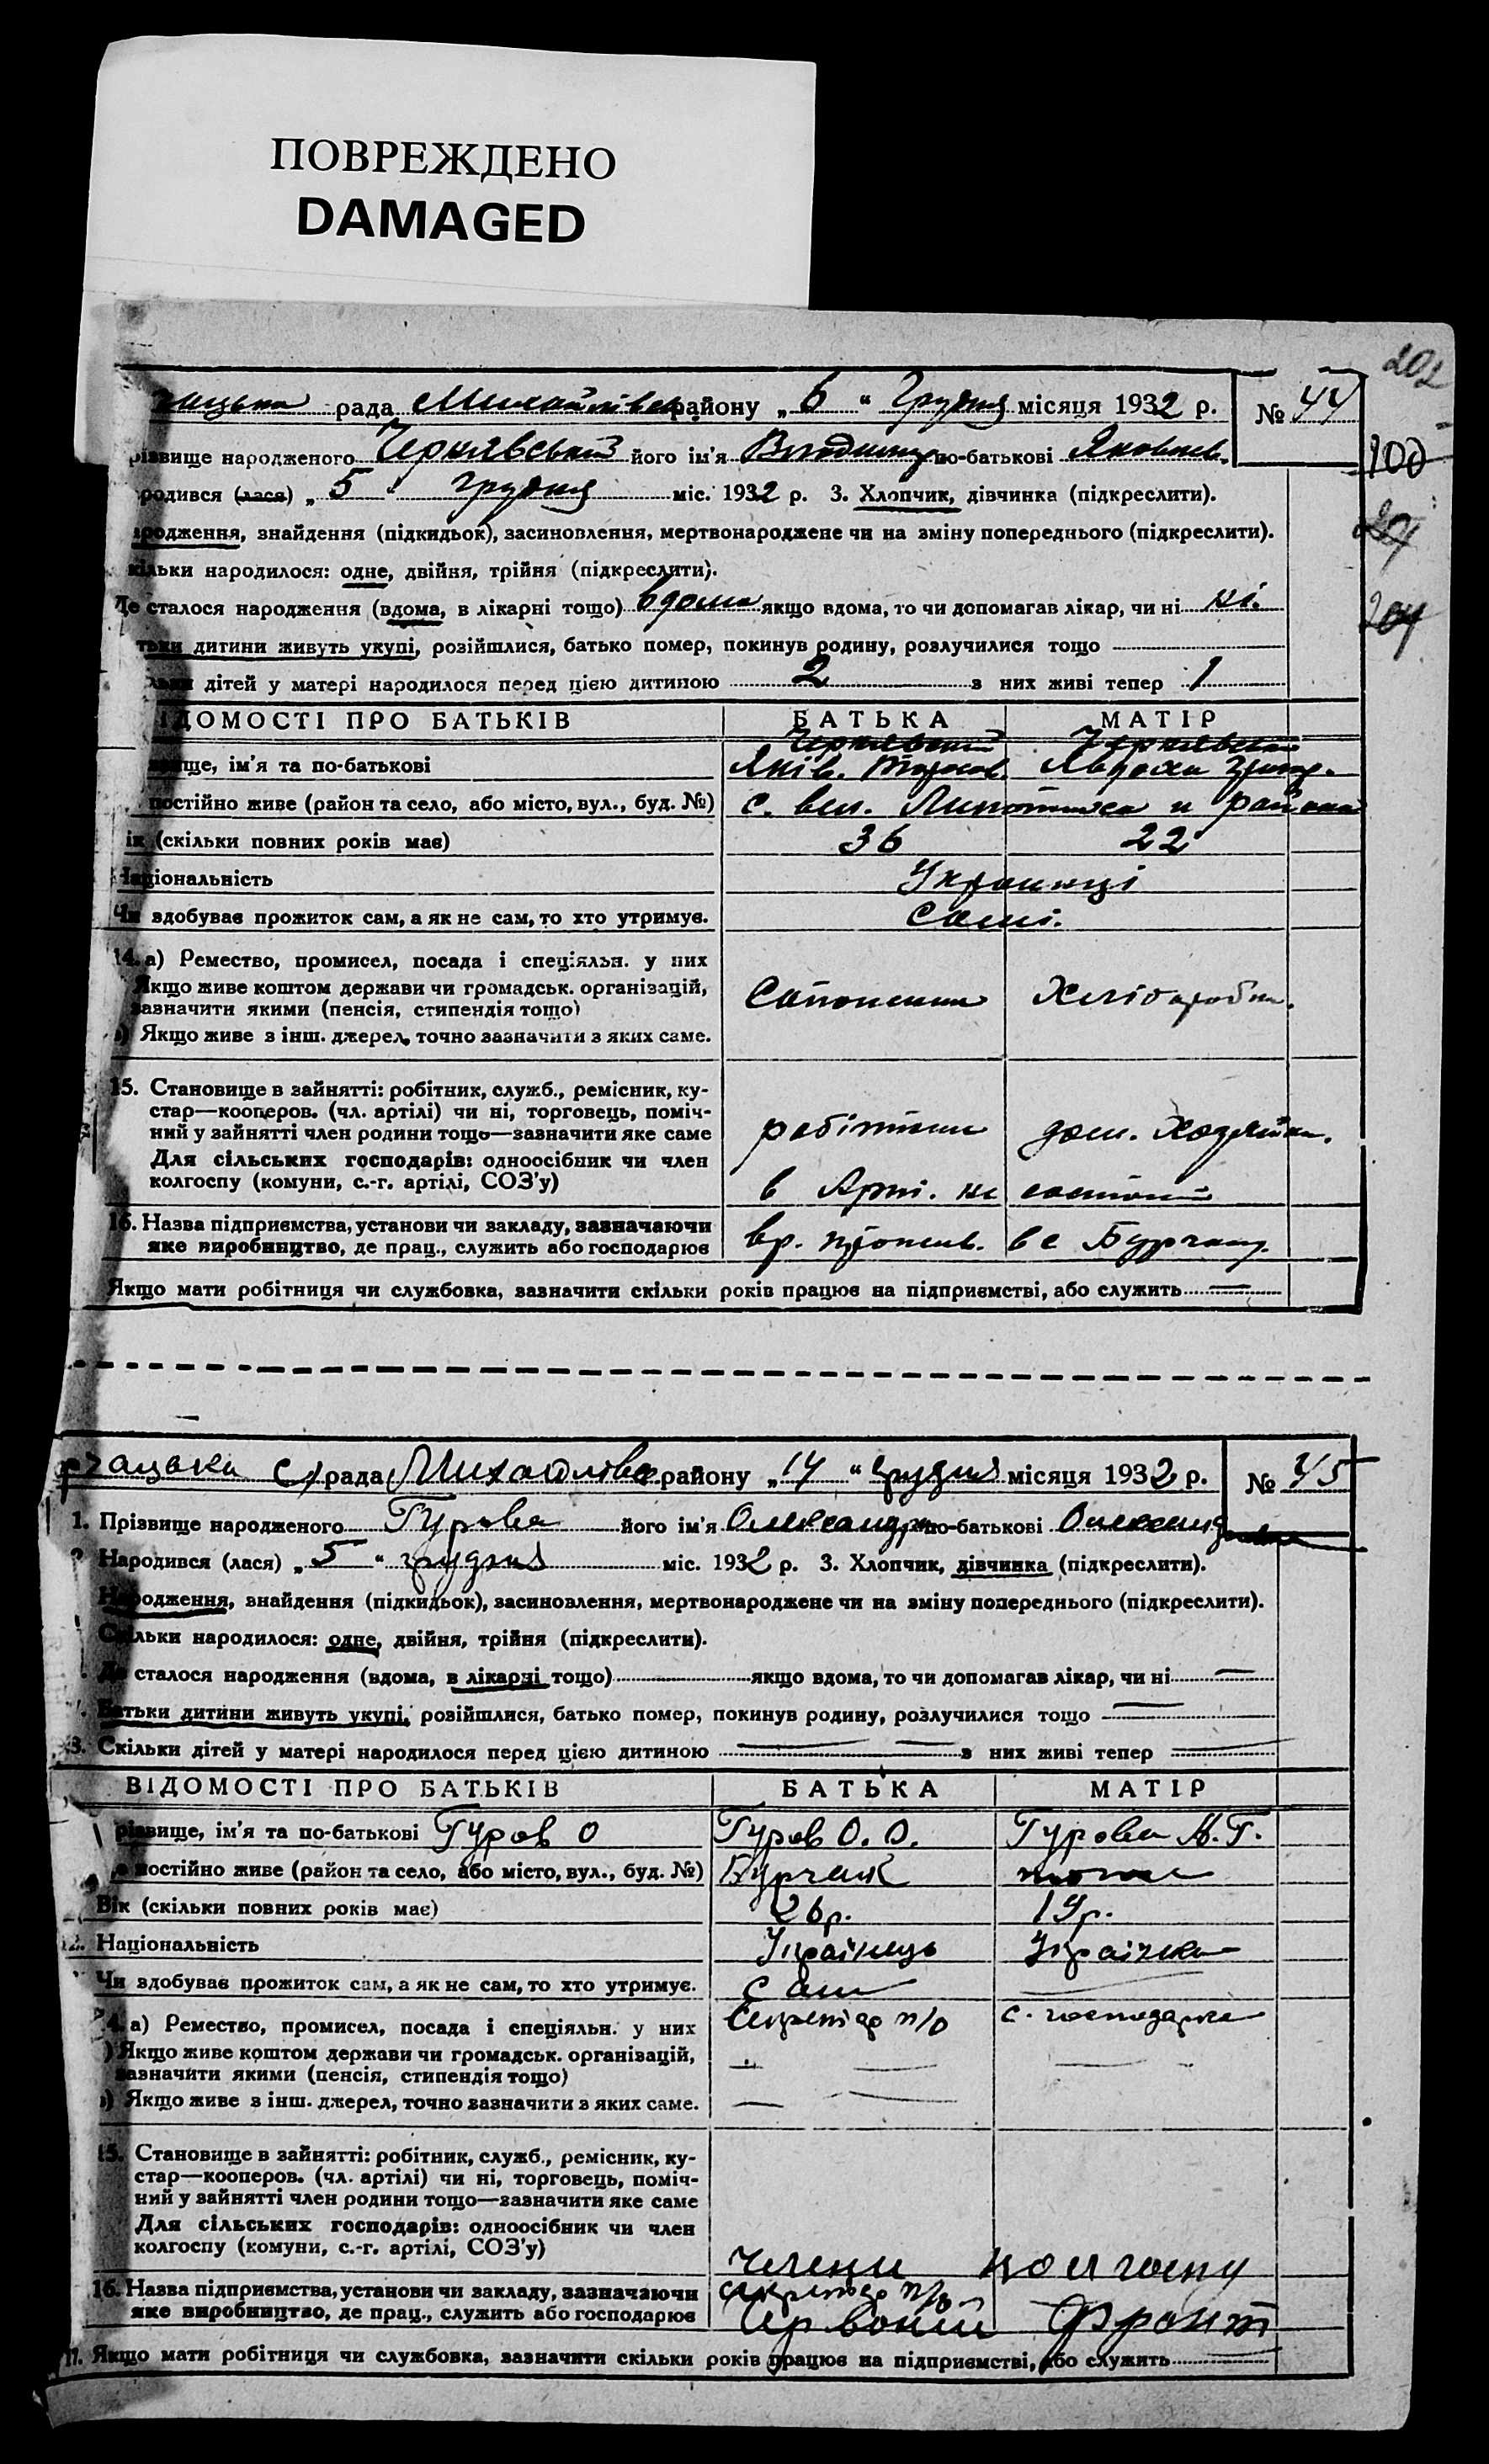 ПОВРЕЖДЕНО
DAMAGED
202
рада Михайлівськ. району „6“ Грудня місяця 1932 р. № 44
різвище народженого Чернявський його ім'я Володимир по-батькові Яковлев.
100
родився (лася) „5“ грудня міс. 1932 р. 3. Хлопчик, дівчинка (підкреслити).
ародження, знайдення (підкидьок), засиновлення, мертвонароджене чи на зміну попереднього (підкреслити).
кільки народилося: одне, двійня, трійня (підкреслити).
Де сталося народження (вдома, в лікарні тощо) вдома якщо вдома, то чи допомагав лікар, чи ні ні.
204
тьки дитини живуть укупі, розійшлися, батько помер, покинув родину, розлучилися тощо
льки дітей у матері народилося перед цією дитиною 2 з них живі тепер 1
ІДОМОСТІ ПРО БАТЬКІВ БАТЬКА МАТІР
Чернявський
вище, ім'я та по-батькові Яків.
постійно живе (район та село, або місто, вул., буд. №) с. вел.
ік (скільки повних років має) 36 22
Національність Українці
Чи здобуває прожиток сам, а як не сам, то хто утримує. Самі.
14. а) Ремество, промисел, посада і спеціяльн. у них
Якщо живе коштом держави чи громадськ. організацій,
зазначити якими (пенсія, стипендія тощо) Сапожник Хлібороб
в) Якщо живе з інш. джерел, точно зазначити з яких саме.
15. Становище в зайнятті: робітник, служб., ремісник, ку-
стар—кооперов. (чл. артілі) чи ні, торговець, поміч-
ний у зайнятті член родини тощо—зазначити яке саме робітник дом. хозяйка.
Для сільських господарів: одноосібник чи член
колгоспу (комуни, с.-г. артілі, СОЗ'у) в Арті. не состоит
16. Назва підприємства, установи чи закладу, зазначаючи
яке виробництво, де прац., служить або господарює вр. прожив. в с Бурчак.
Якщо мати робітниця чи службовка, зазначити скільки років працює на підприємстві, або служить —
рчацька С/рада Михайлівськ району „14“ грудня місяця 1932 р. № 45
1. Прізвище народженого Гурова його ім'я Олександра по-батькові Олександровна
2. Народився (лася) „5“ грудня міс. 1932 р. 3. Хлопчик, дівчинка (підкреслити).
Народження, знайдення (підкидьок), засиновлення, мертвонароджене чи на зміну попереднього (підкреслити).
Скільки народилося: одне, двійня, трійня (підкреслити).
Де сталося народження (вдома, в лікарні тощо) якщо вдома, то чи допомагав лікар, чи ні —
Батьки дитини живуть укупі, розійшлися, батько помер, покинув родину, розлучилися тощо —
8. Скільки дітей у матері народилося перед цією дитиною — — з них живі тепер —
ВІДОМОСТІ ПРО БАТЬКІВ БАТЬКА МАТІР
різвище, ім'я та по-батькові Гуров О Гуров О. О. Гурова К. Г.
постійно живе (район та село, або місто, вул., буд. №) Бурчак тоже
Вік (скільки повних років має) 26 р. 19 р.
12. Національність Українець Українка
Чи здобуває прожиток сам, а як не сам, то хто утримує. сам —
14. а) Ремество, промисел, посада і спеціяльн. у них Секретар п/о с. господарка
) Якщо живе коштом держави чи громадськ. організацій, — —
зазначити якими (пенсія, стипендія тощо)
в) Якщо живе з інш. джерел, точно зазначити з яких саме. — —
15. Становище в зайнятті: робітник, служб., ремісник, ку-
стар—кооперов. (чл. артілі) чи ні, торговець, поміч-
ний у зайнятті член родини тощо—зазначити яке саме
Для сільських господарів: одноосібник чи член
колгоспу (комуни, с.-г. артілі, СОЗ'у) члени колгоспу
16. Назва підприємства, установи чи закладу, зазначаючи секретар п/о
яке виробництво, де прац., служить або господарює Червоний Фронт
17. Якщо мати робітниця чи службовка, зазначити скільки років працює на підприємстві, або служить —